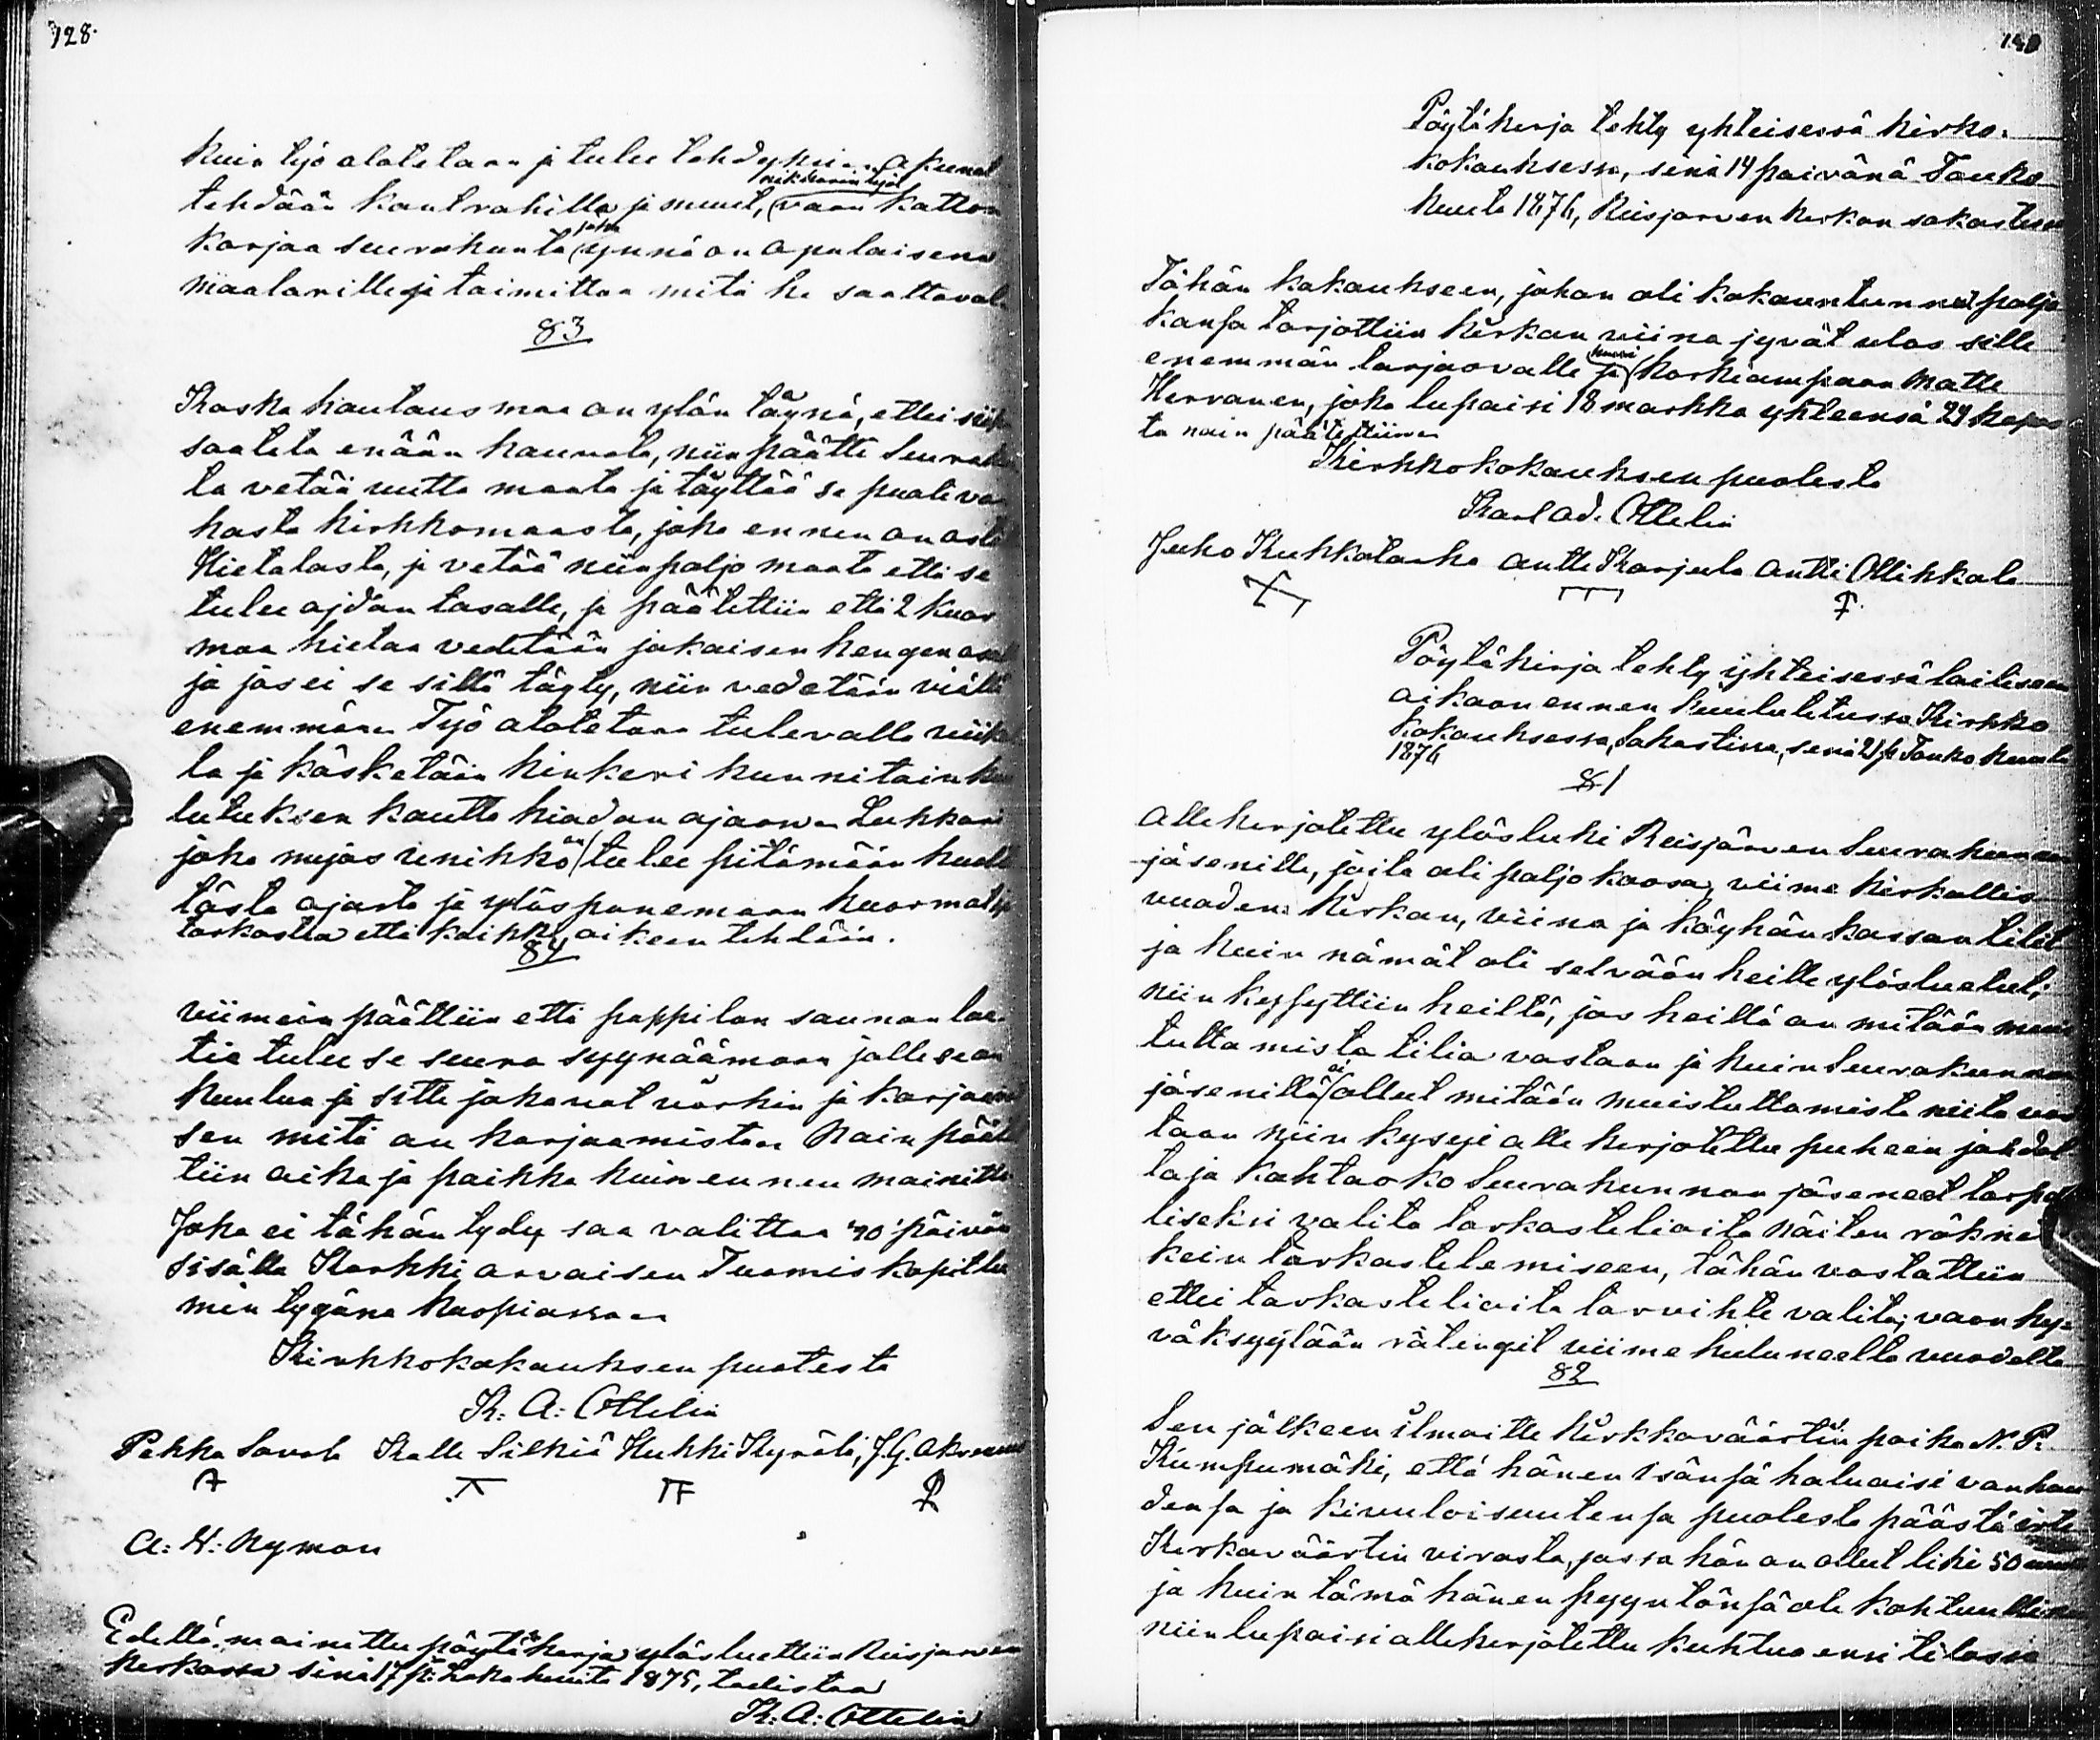 128.
kuin työ alotetaan ja tulee tehdyksi. akunat
nikkarin työt
tehdään kontrahilla ja muut, vaan katton
jotka
korjaa seurakunta ynnä on apulaisena
maalarille ja taimittaa mitä he saattavat
§3
Koska hautausmaa on ylön täynä, ettei siihen
saateta enään hauvata, niin päätti Seurakun
ta vetää uutta maata ja täyttää se puoli van
hasta kirkkomaasta, joka ennen on ostettu
Hietalasta, ja vetää niin paljo maata että se
tulee ajdan tasalle, ja päätettiin että 2 kuor
maa hietaa vedetään jokaisen hengen osalle
ja jos ei se sillä täyty, niin vedetään viällä
enemmän. Työ alotetaan tulevalla viikol
la ja käsketään kinkeri kunnitain kuu
lutuksen kautta hiadan ajaon. Lukkari
joka myös unikkoän tulee pitämään huolta
tästä ajasta ja ylöspanemaan kuormat ja
tarkastaa että kaikki oikeen tehdään.
§4
viimein päättiin että pappilan saunan lae-
tia tulee se seura syynäämaan jolle se on
kuuluu ja sitte jakavat värkin ja karjaavat
sen mitä on korjaamista. Näin päätet
tiin aika ja paikka kuin ennen mainittu.
Joka ei tähän tydy saa valittaa 30 päivän
sisällä Korkkiarvaisen Tuomiokapittu
min tygöna Kuopiassa.
Kirkkokokouksen puolesta
K: A: Ottelin
Pekka Savola Kalle Silkiä Heikki Kyrölä, J. G. Akrenius
A: H: Nyman
Edellä mainittu pöytäkirja ylösluettiin Reisjärven
kirkossa sinä 17 p: Lokakuuta 1875, todistaa
K: A: Ottelin
Pöytäkirja tehty yhteisessä kirko-
kokouksessa, senä 14 päivänä Touko
kuuta 1876, Reisjärven kirkon sakastissa
Tähän kokoukseen, johon oli kokoontunnut paljo
kansa tarjottiin kirkon viina jyvät ulos sille
huusi
enemmän tarjoovalle ja korkeampaan Matte
Hirvonen, joka lupaisi 18 markka yhteensä 24 kapas
ta näin päätettiin
Kirkkokokouksen puolesta
Karl Ad. Ottelin
Juho Kukkolarka Antti Karjula Antti Ollikkala
Pöytäkirja tehty yhteisessä lailiseen
aikaan ennen kuulutetussa Kirkko
kokouksessa, Sakastissa, senä 21 p: Touko kuuta
1876
§1
Allekirjotettu ylösluki Reisjärven Seurakunnan
jäsenille, joita oli paljo koossa, viime kirkollis
vuoden kirkon, viina ja köyhän kassan tilit
ja kuin nämät oli selvään heille ylösluetut,
niin kysyttiin heiltä, jos heillä on mitään muis
tuttamista tiliä vastaan ja kuin Seurakunnan
ei
jäsenillä ollut mitään muistuttamista niitä vas
taan niin kysyi alle kirjotettu puheen johdat
taja kahtooko Seurakunnan jäsenet tarpeel
liseksi valita tarkastelioita näiten räkne
kein tarkastelemiseen, tähän vastattiin
ettei tarkastelioita tarvihte valita, vaan hy-
väksyytään rätingit viime kuluneelta vuodelta
§2
Sen jälkeen ilmoitte Kirkkoväärtin poika N. P.
Kumpumäki, että hänen isänsä haluaisi vanhuu
densa ja kivuloisuutensa puolesta päästä irti
Kirkaväärtin virasta, jossa hän on ollut liki 50 vuotta
ja kuin tämä hänen pyyntönsä ole kohtuullinen
niin lupaisi allekirjotettu kuhtua ensi tilassa